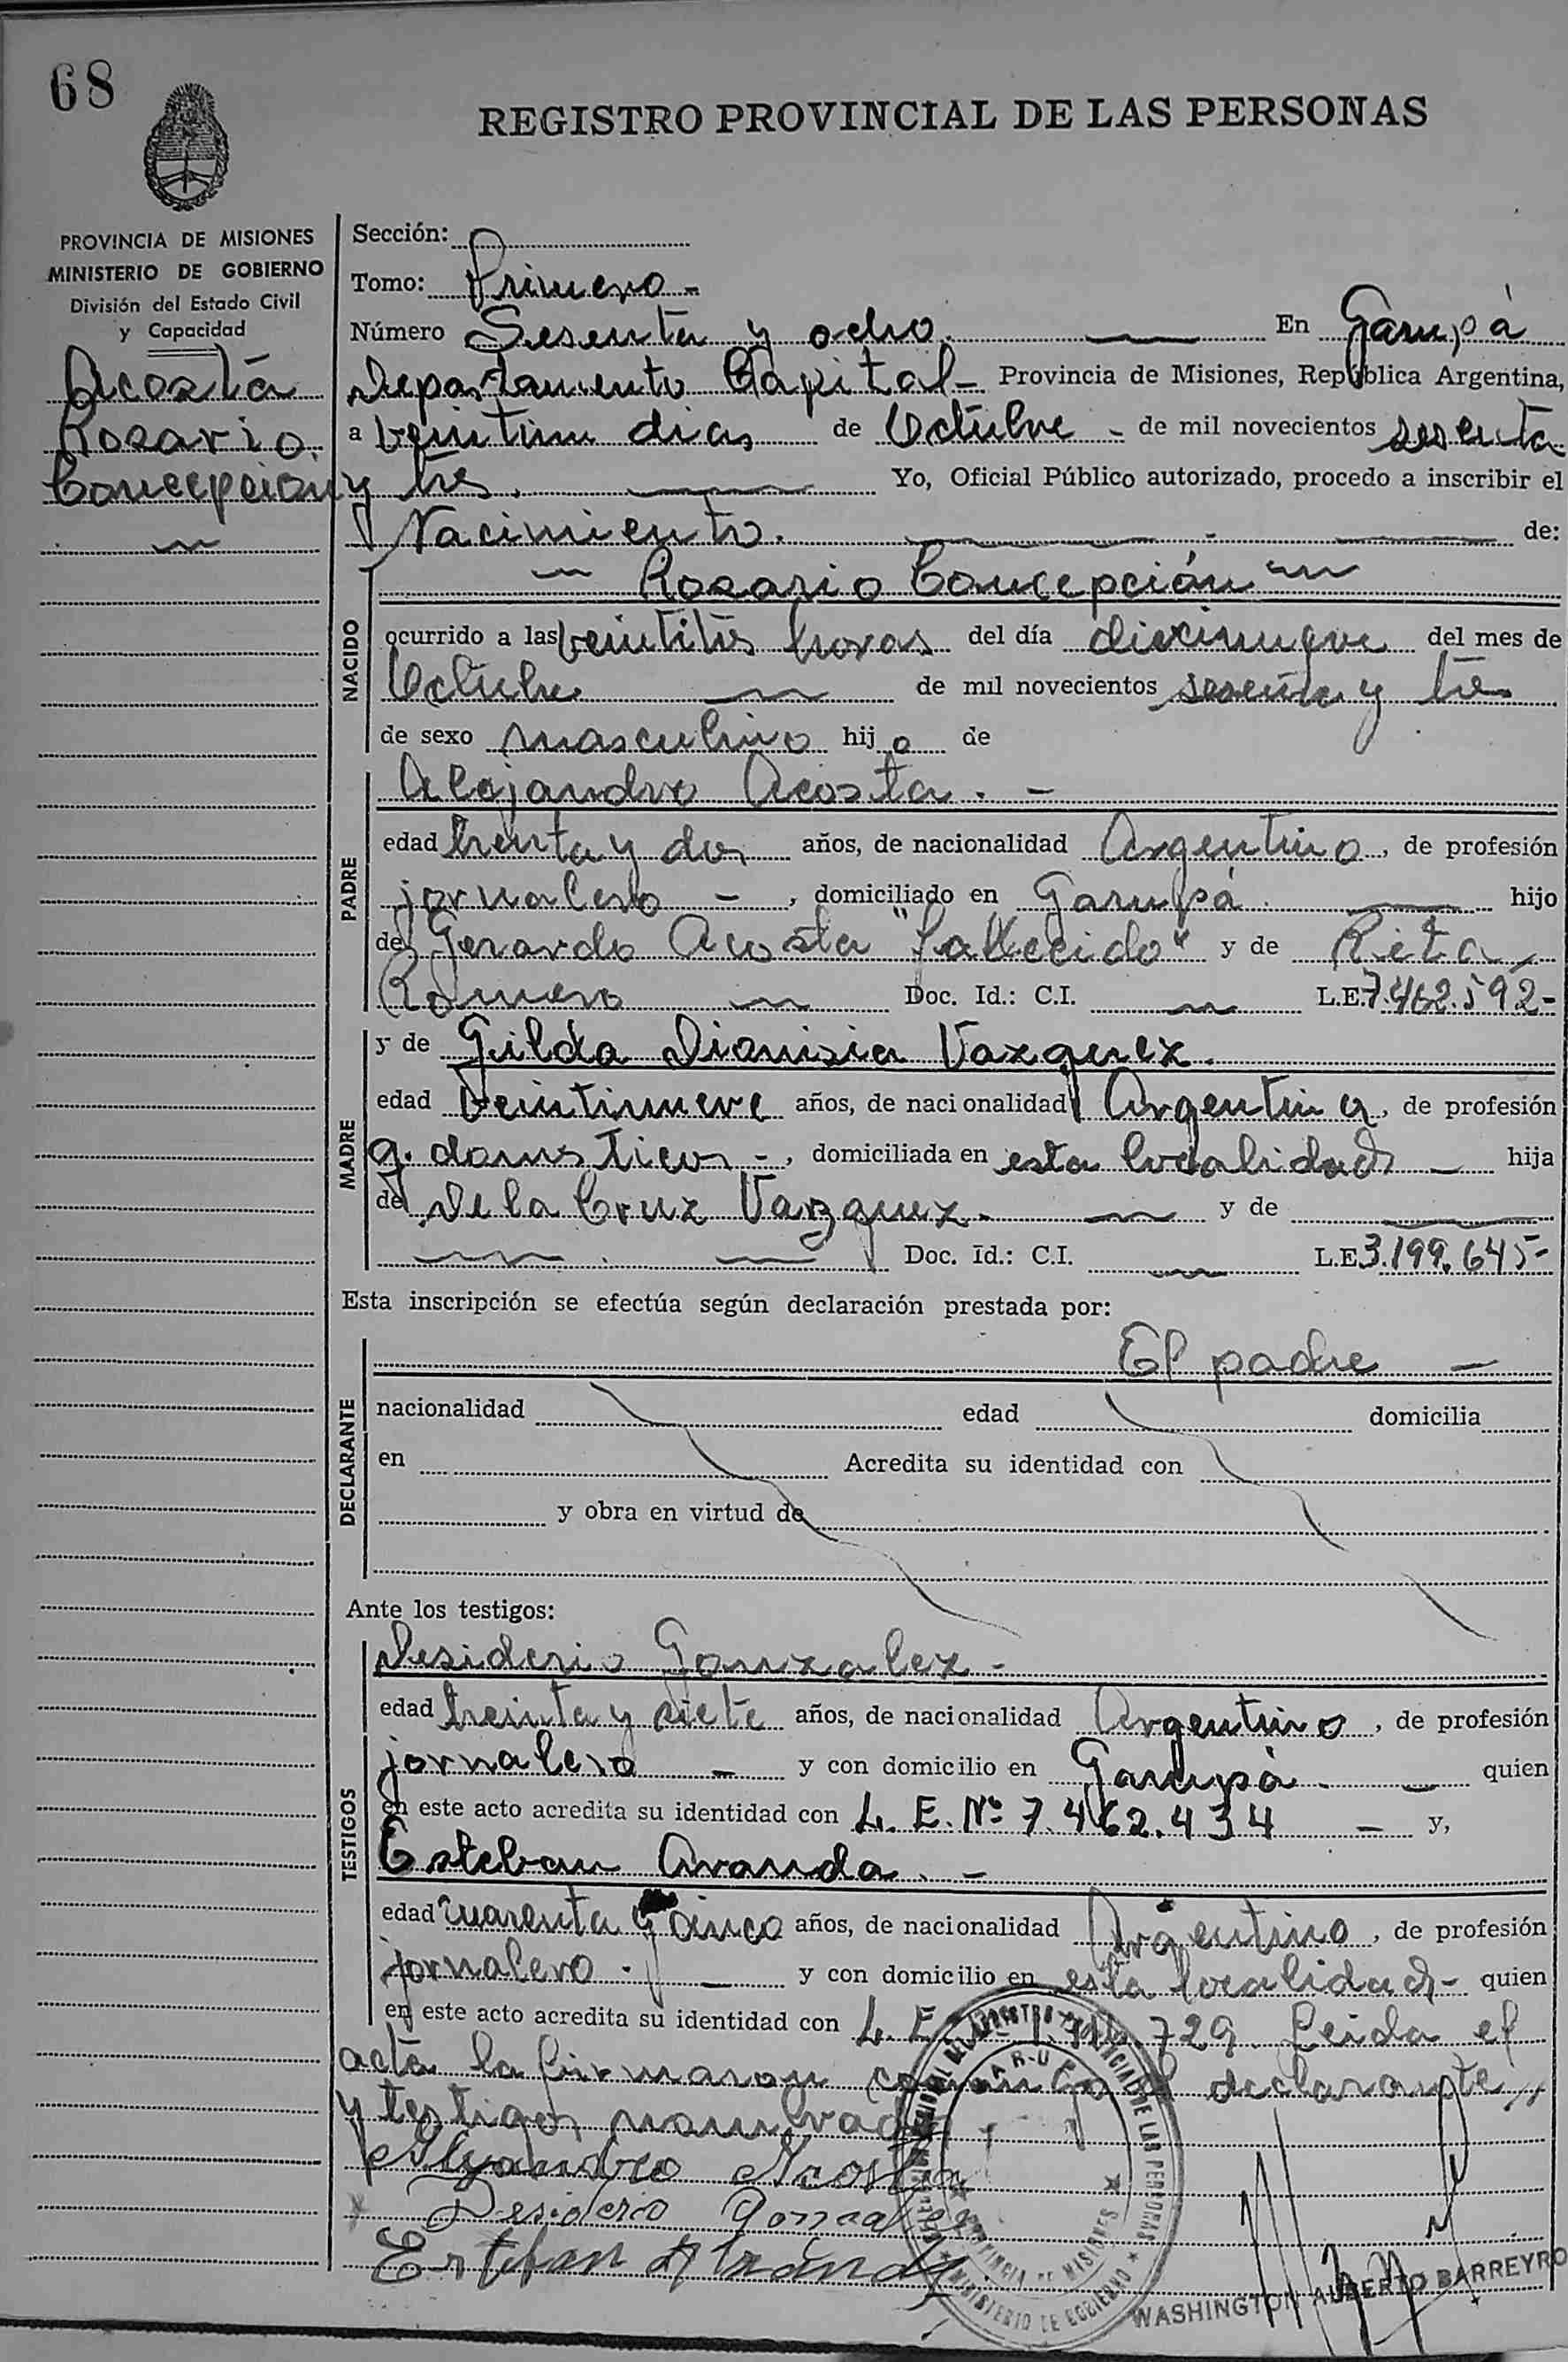 68
REGISTRO PROVINCIAL DE LAS PERSONAS
PROVINCIA DE MISIONES
MINISTERIO DE GOBIERNO
División del Estado Civil
y Capacidad
Acosta
Rosario
Concepción
Sección:
Tomo: Primero -
Número Sesenta y ocho. En Garupá
Departamento Capital - Provincia de Misiones, República Argentina,
a veintiun dias de Octubre - de mil novecientos sesenta
y tres. Yo, Oficial Público autorizado, procedo a inscribir el
Nacimiento. de:
NACIDO
Rosario Concepción
ocurrido a las veintitrés horas del día diecinueve del mes de
Octubre de mil novecientos sesenta y tres
de sexo masculino hijo de
PADRE
Alejandro Acosta. -
edad treinta y dos años, de nacionalidad Argentino, de profesión
jornalero -, domiciliado en Garupá. hijo
de Gerardo Acosta "fallecido" y de Rita
Romero Doc. Id.: C.I. L.E. 7.462.592-
MADRE
y de Gilda Dionisia Vazquez.
edad veintinueve años, de nacionalidad Argentina, de profesión
q. domesticos -, domiciliada en esta localidad - hija
de De la Cruz Vazquez. y de
Doc. Id.: C.I. L.E. 3.199.645-
Esta inscripción se efectúa según declaración prestada por:
DECLARANTE
El padre -
nacionalidad edad domicilia
en Acredita su identidad con
y obra en virtud de
Ante los testigos:
TESTIGOS
Desiderio Gonzalez -
edad treinta y siete años, de nacionalidad Argentino, de profesión
jornalero - y con domicilio en Garupá. - quien
en este acto acredita su identidad con L. E. Nº 7.462.434 - y,
Esteban Aranda. -
edad cuarenta y cinco años, de nacionalidad Argentino, de profesión
jornalero. - y con domicilio en esta localidad - quien
en este acto acredita su identidad con L. E. 729. Leida el
acta la firmaron declarante
y testigos
Alejandro Acosta
Desiderio
Esteban Aranda
REGISTRO PROVINCIAL DE LAS PERSONAS
GARUPA
PROVINCIA DE MISIONES
MINISTERIO DE GOBIERNO
WASHINGTON ALBERTO BARREYRO